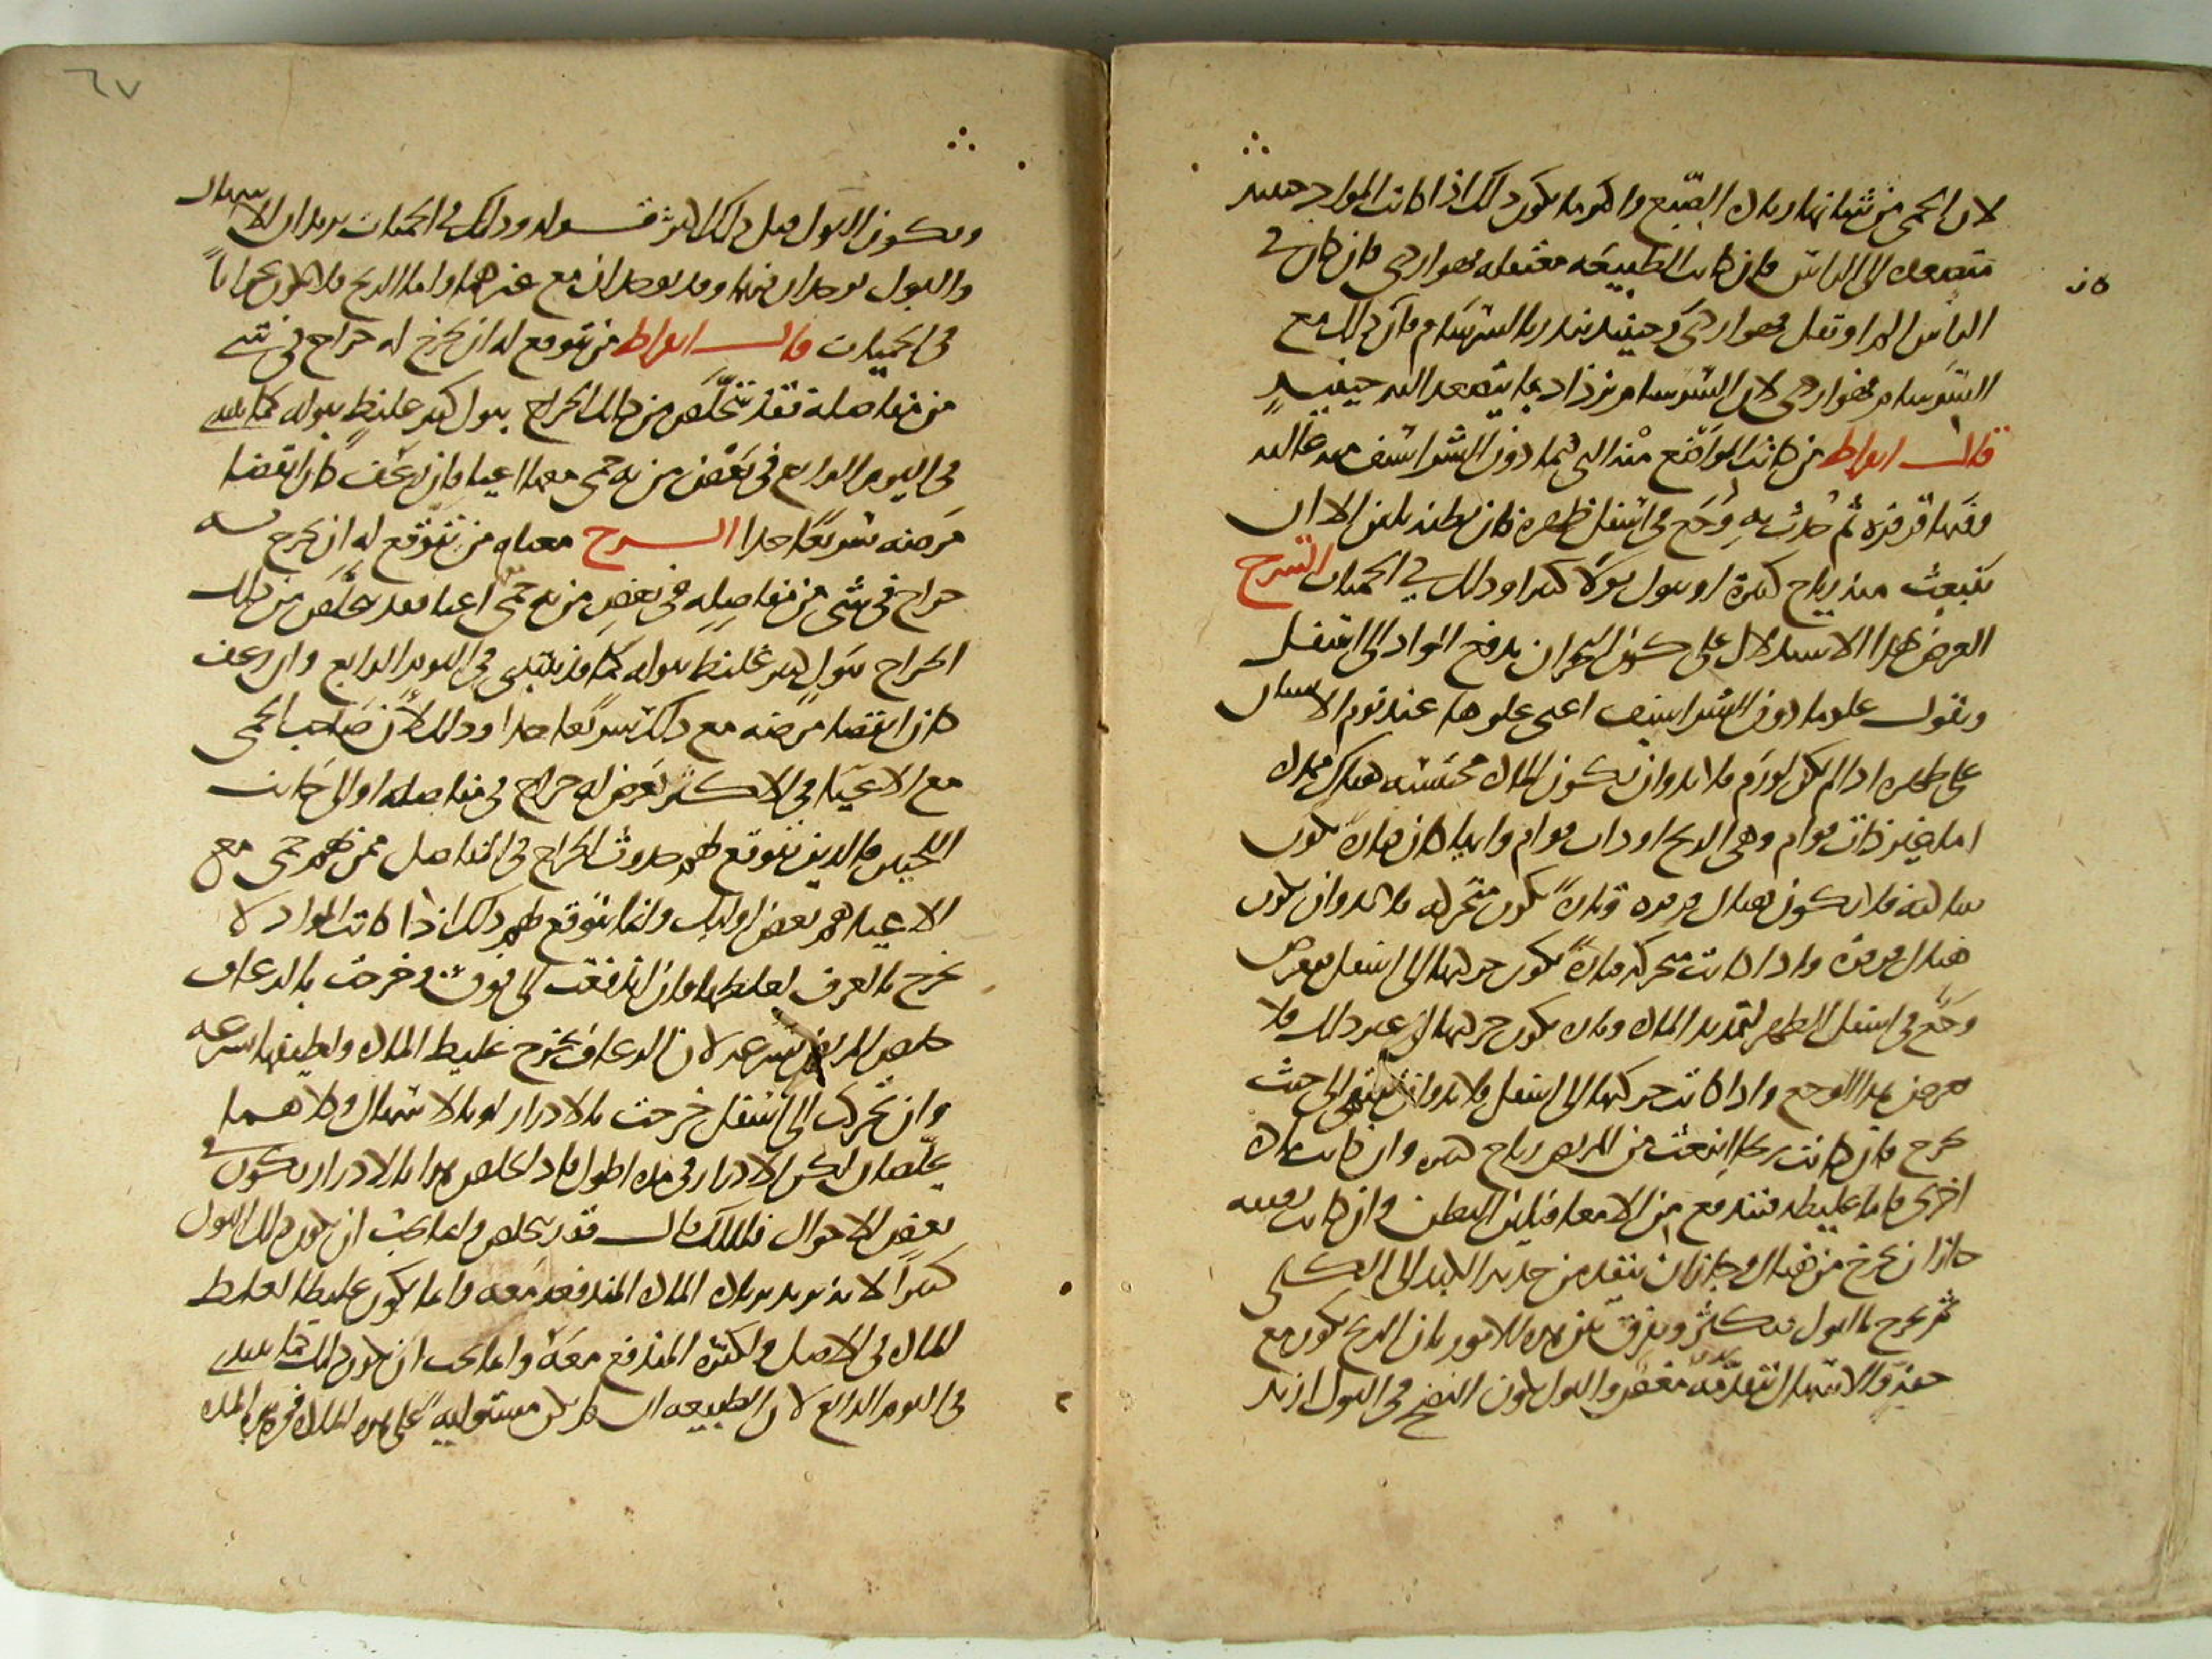 لان الحمى من شانها زيادة الصبغ واكثر ما يكون ذلك اذا كانت المواد حينئذ
متصعدة الى الراس فان كانت الطبيعة معتقلة فهو اردى فان كان في
الراس الم او ثقل فهو اردى وحينئذ ينذر بالسرسام فان ذلك مع
السرسام فهو اردى لان السرسام يزداد بما يتصعد اليه حينئذ
قال ابقراط من كانت المواضع منه التي فيما دون الشراسيف منه عالية
وفيها قرقرة ثم حدث به وجع في اسفل ظهره فان بطنه يلين الا ان
تنبعث منه رياح كثيرة او يبول بولا كثيرا وذلك في الحميات الشرح
الغرض بهذا الاستدلال على كون البحران بدفع المواد الى اسفل
ونقول علو ما دون الشراسيف اعني علوها عند نوم الانسان
على ظهره اذا لم يكن لورم فلا بد وان يكون لمادة محتبسة هناك فهذه
اما غير ذات قوام وهي الريح او ذات قوام وايا ما كان فتارة تكون
ساكنة فلا يكون هناك قرقرة وتارة تكون متحركة فلا بد وان يكون
هناك قرقرة واذا كانت متحركة فتارة تكون حركتها الى اسفل فيعرض
وجع في اسفل الظهر لتمديد المادة وتارة تكون حركتها الى غير ذلك فلا
يعرض هذا الوجع واذا كانت حركتها الى اسفل فلا بد وان تنتهي الى حيث
تخرج فان كانت ريحا انبعثت من المريض رياح كثيرة وان كانت مادة
اخرى فاما غليظة فتندفع من الامعاء فيلين البطن وان كانت رقيقة
جاز ان تخرج من هناك وجاز ان تنفذ من حدبة الكبد الى الكلى
ثم تخرج بالبول فيكثر ويفرق بين هذه الامور بان الريح يكون مع
خفة والاسهال يتقدمه مغص والبول يكون النضج في البول ازيد
ويكون البول قبل ذلك اكثر قوله وذلك في الحميات يريد ان الاسهال
والبول يوجدان فيها وقد يوجدان مع غيرها واما الريح فلا تكون بحرانا
في الحميات قال ابقراط من يتوقع له ان يخرج به خراج في شي
من مفاصله فقد يتخلص من ذلك الخراج ببول كثير غليظ يبوله كما يبتدي
في اليوم الرابع في بعض من به حمى معها اعيا فان رعف كان انقضا
مرضه سريعا جدا الشرح معناه من يتوقع له ان يخرج به
خراج في شي من مفاصله في بعض من به حمى اعيا فقد يتخلص من ذلك
الخراج ببول كثير غليظ يبوله كما قد يبتدي في اليوم الرابع وان رعف
كان انقضا مرضه مع ذلك سريعا جدا وذلك لان صاحب الحمى
مع الاعيا في الاكثر يعرض له خراج في مفاصله او الى جانب
اللحيين فالذين يتوقع لهم حدوث الخراج في المفاصل ممن بهم حمى مع
الاعيا هم بعض اولئك وانما يتوقع لهم ذلك اذا كانت المواد لا
تخرج بالعرق لغلظها فان اندفعت الى فوق وخرجت بالرعاف
خلص المريض بسرعة لان الرعاف يخرج غليظ المادة ولطيفها بسرعة
وان تحركت الى اسفل خرجت بالادرار او بالاسهال وكلاهما
يخلصان لكن الادرار في مدة اطول فاذا الخلاص بالادرار يكون في
بعض الاحوال فلذلك قال قد يتخلص وانما يجب ان يكون ذلك البول
كثيرا لانه يزيد بزيادة المادة المندفعة معه وانما يكون غليظا لغلظ
المادة في الاصل ولكثرة المندفع معه وانما يجب ان يكون ذلك كما يبتدي
في اليوم الرابع لان الطبيعة ان لم تكن مستولية على هذه المادة